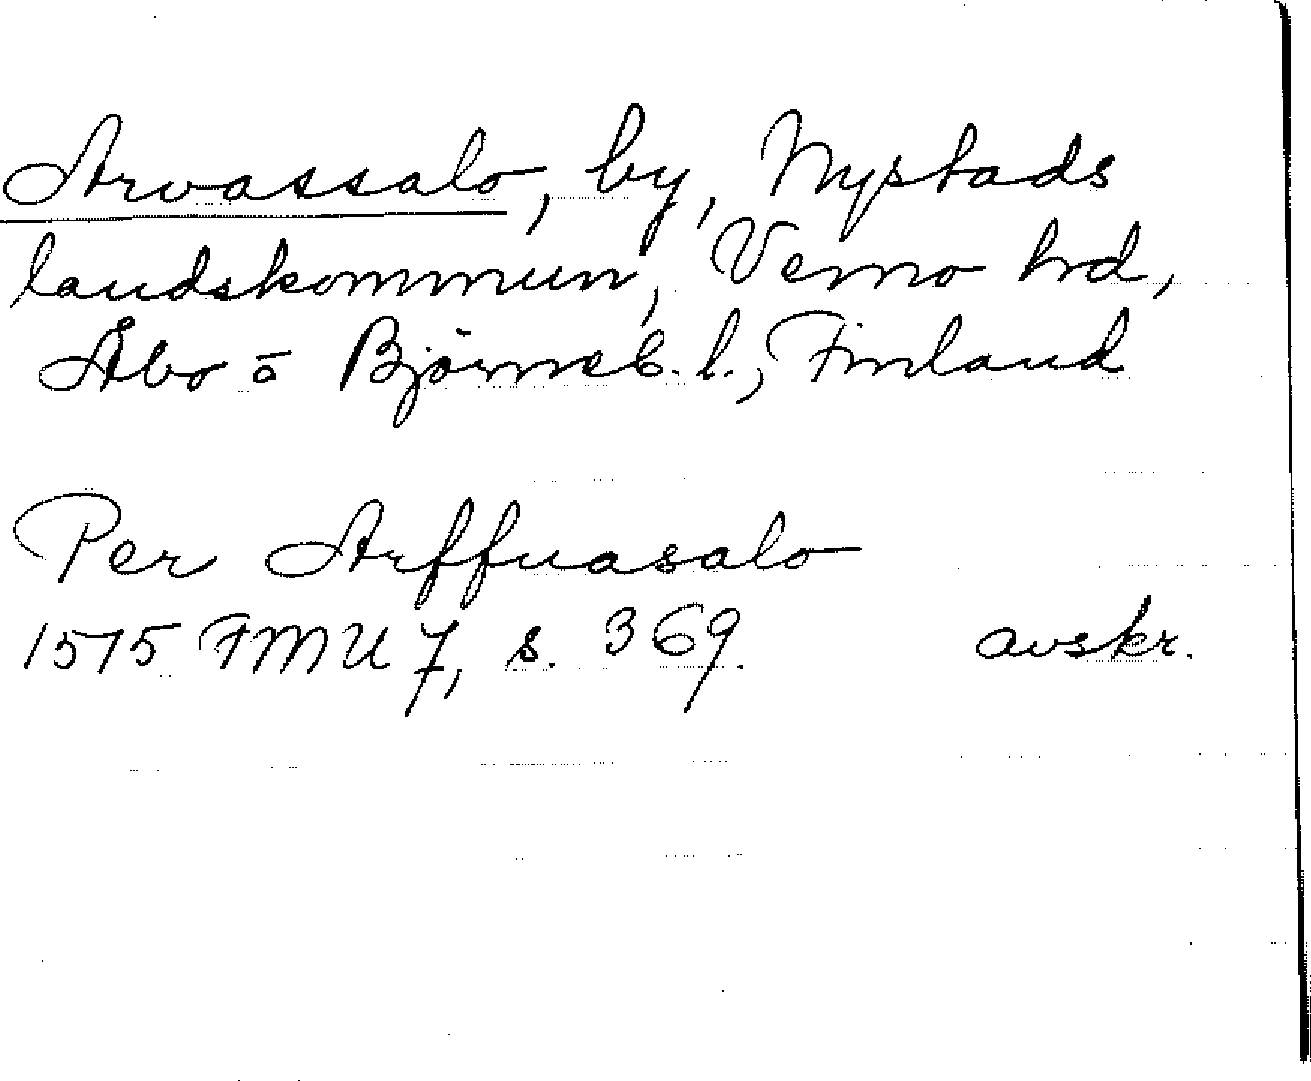 Arvassalo, by, Nystads
landskommun, Vemo hrd,
Åbo o Björneb. l., Finland
Per Arffuasalo
1575 FMU 7, s. 369. avskr.